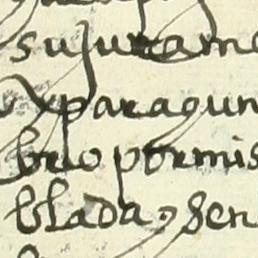 su jurame
y para qun
brio por mis
blada, sen